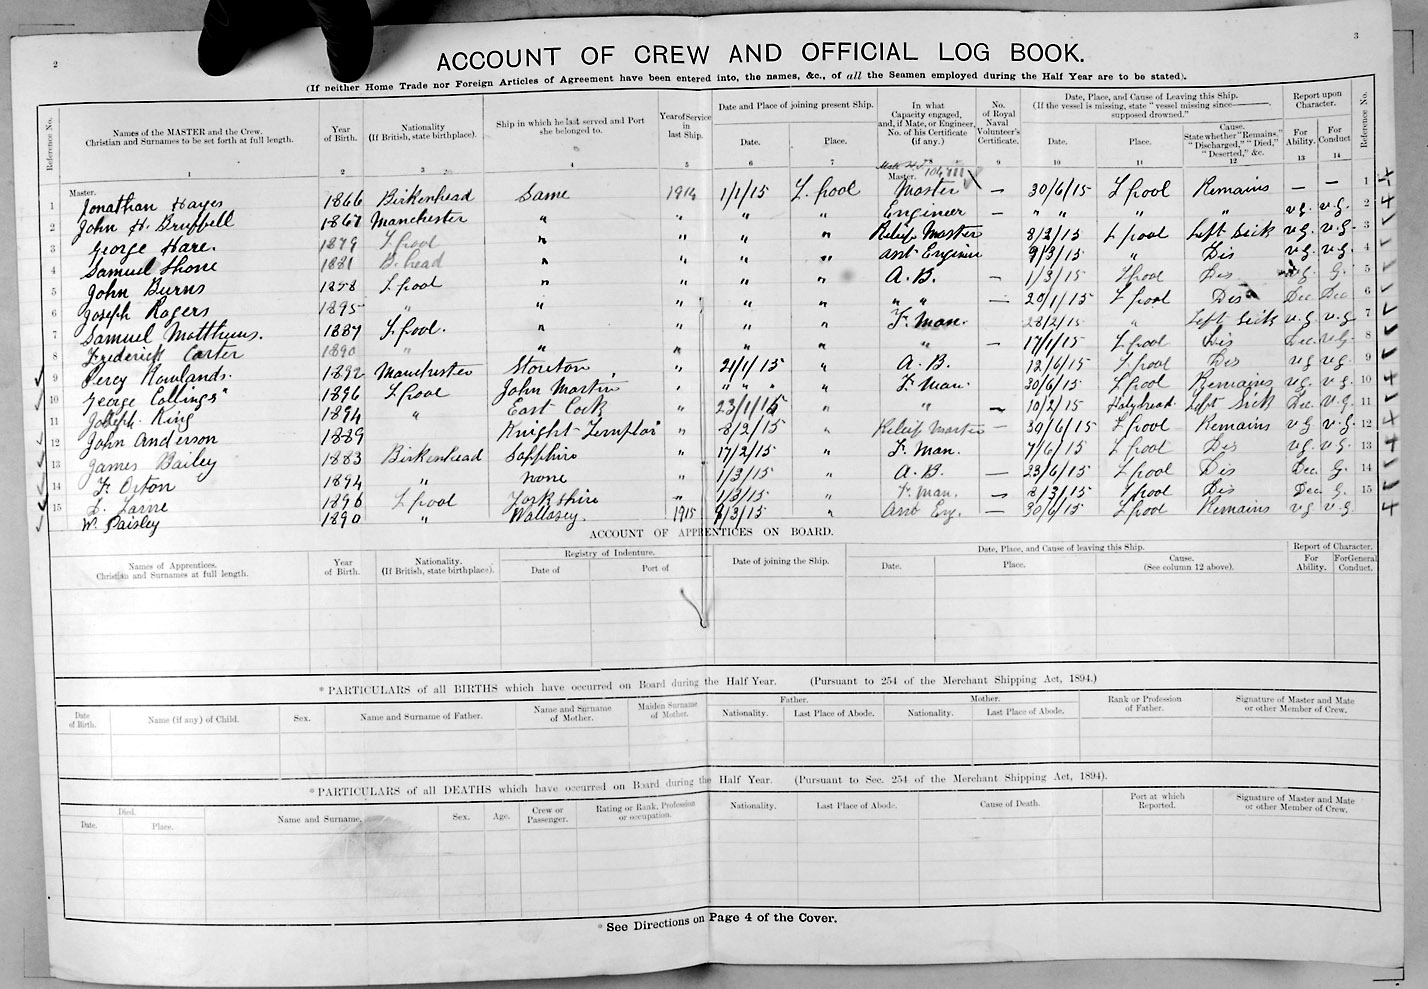 2
3
ACCOUNT OF CREW AND OFFICIAL LOG BOOK.
(If neither Home Trade nor Foreign Articles of Agreement have been entered into, the names, &c., of all the Seamen employed during the Half Year are to be stated).
Reference No. Names of the MASTER and the Crew. Christian and Surnames to be set forth at full length. Year of Birth. Nationality (If British, state birthplace). Ship in which he last served and Port she belonged to. Year of Service in last Ship. Date and Place of joining present Ship. Date. Place. In what Capacity engaged, and, if Mate, or Engineer, No. of his Certificate (if any.) No. of Royal Naval Volunteer's Certificate. Date, Place, and Cause of Leaving this Ship. (If the vessel is missing, state "vessel missing since———, supposed drowned." Date. Place. Cause. State whether "Remains," "Discharged," "Died," "Deserted," &c. Report upon Character. For Ability. For Conduct Reference No.
1 2 3 4 5 6 7 9 10 11 12 13 14
Master. Master.
1 Jonathan Hayes 1866 Birkenhead Same 1914 1/1/15 L'pool Master — 30/6/15 L'pool Remains — — 1
2 John H. Bruffell 1867 Manchester " " " " Engineer — " " " " v.g. v.g. 2
3 George Hare. 1879 L'pool " " " " Relief Master 8/2/15 L'pool Left Sick v.g. v.g. 3
4 Samuel Shone 1881 B.head " " " " Asst Engineer 9/3/15 " Dis v.g. v.g. 4
5 John Burns 1858 L'pool " " " " A.B. — 1/3/15 L'pool Dis v.g. G. 5
6 Joseph Rogers 1895 " " " " " " " — 20/1/15 L'pool Dis Dec Dec 6
7 Samuel Matthews. 1887 L'pool. " " " " F.Man. 28/2/15 " Left Sick v.g. v.g. 7
8 Frederick Carter 1890 " " " " " " — 17/1/15 L'pool Dis Dec. v.g. 8
9 Percy Rowlands. 1892 Manchester Stourton " 21/1/15 " A.B. 12/6/15 L'pool Dis v.g. v.g. 9
10 George Collings 1896 L'pool John Martin " " " " " F.Man. 30/6/15 L'pool Remains v.g. v.g. 10
11 Joseph King 1894 " East Cock " 23/1/15 " " — 10/2/15 Holyhead Left Sick Dec v.g. 11
12 John Anderson 1889 Knight Templar " 8/2/15 " Relief Master — 30/6/15 L'pool Remains v.g. v.g. 12
13 James Bailey 1883 Birkenhead Sapphire " 17/2/15 " F.Man. 7/6/15 L'pool Dis v.g. v.g. 13
14 F. Orton 1894 " None " 1/3/15 " A.B. — 23/6/15 L'pool Dis Dec. G. 14
15 1896 L'pool Yorkshire " 1/3/15 " F.Man. — 8/3/15 L'pool Dis Dec G. 15
W. Paisley 1890 " Wallasey. 1915 9/3/15 " Asst Eng. — 30/6/15 L'pool Remains v.g. v.g.
ACCOUNT OF APPRENTICES ON BOARD.
Names of Apprentices. Christian and Surnames at full length. Year of Birth. Nationality. (If British, state birthplace). Registry of Indenture. Date of Port of Date of joining the Ship. Date, Place, and Cause of leaving this Ship. Date. Place. Cause. (See column 12 above). Report of Character. For Ability. For General Conduct.
*PARTICULARS of all BIRTHS which have occurred on Board during the Half Year. (Pursuant to 254 of the Merchant Shipping Act, 1894.)
Date of Birth. Name (if any) of Child. Sex. Name and Surname of Father. Name and Surname of Mother. Maiden Surname of Mother. Father. Nationality. Last Place of Abode. Mother. Nationality. Last Place of Abode. Rank or Profession of Father. Signature of Master and Mate or other Member of Crew.
*PARTICULARS of all DEATHS which have occurred on Board during the Half Year. (Pursuant to Sec. 254 of the Merchant Shipping Act, 1894).
Died. Date. Place. Name and Surname. Sex. Age. Crew or Passenger. Rating or Rank, Profession or occupation. Nationality. Last Place of Abode. Cause of Death. Port at which Reported. Signature of Master and Mate or other Member of Crew.
*See Directions on Page 4 of the Cover.